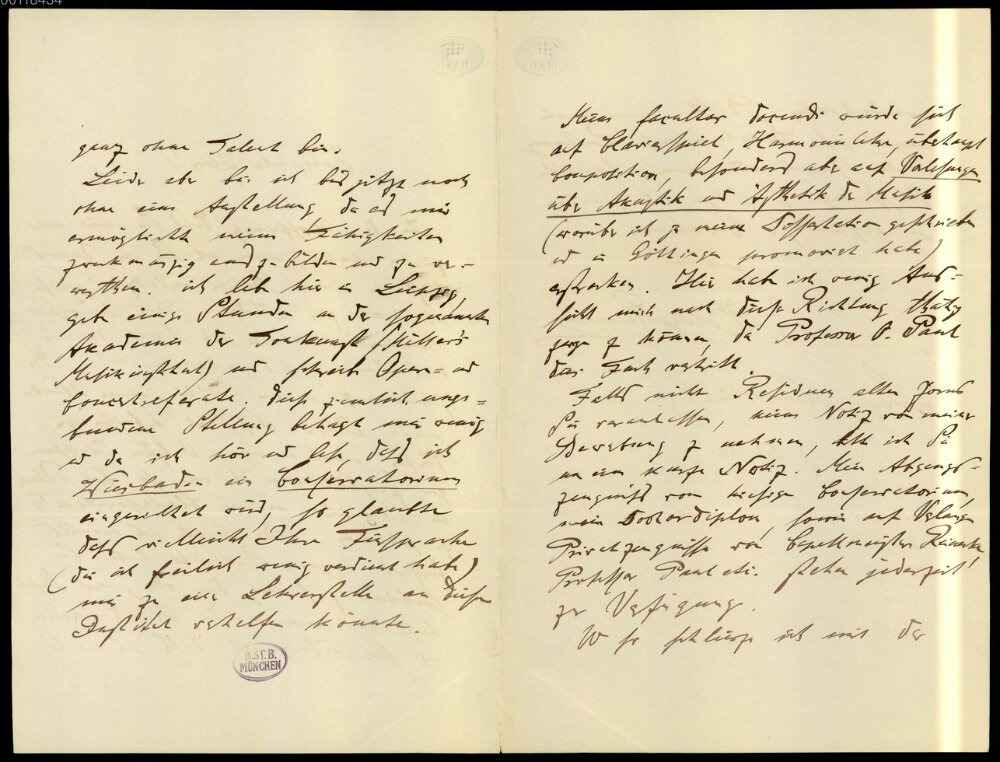 00118454
ganz ohne Talent bin.
Leider aber bin ich bis jetzt noch
ohne eine Anstellung, da es mir
ermöglichte meine Fähigkeiten
zweckmäßig auszubilden und zu ver-
werthen. ich lebe hier in Leipzig,
gebe einige Stunden an der sogenannten
Akademie der Tonkunst (Müller's
Musikinstitut) und schreibe Opern= und
Concertreferate. Diese ziemlich unge-
bundene Stellung behagt mir wenig
und da ich höre und lese, daß in
Wiesbaden ein Conservatorium
eingerichtet wird, so glaubte
daß vielleicht Ihre Fürsprache
(die ich freilich wenig verdient habe)
mir zu einer Lehrerstelle an diesem
Institut verhelfen könnte.
B.ST.B.
MÜNCHEN
Meine facultas docendi würde sich
auf Clavierspiel, Harmonielehre, überhaupt
Composition, besonders aber auf Vorlesungen
über Akustik und Ästhetik der Musik
(worüber ich ja meine Dissertation geschrieben
und in Göttingen promovirt habe)
erstrecken. Hier habe ich wenig Aus-
sicht mich nach dieser Richtung thätig
zeigen zu können, da Professor O. Paul
das Fach vertritt.
Falls nicht Residuen alten Zorns
Sie veranlassen, keine Notiz von meiner
Bewerbung zu nehmen, bitte ich Sie
um eine kurze Notiz. Mein Abgangs-
zeugniß vom hiesigen Conservatorium,
mein Doctordiplom, sowie auf Verlangen
Privatzeugnisse von Capellmeister Reinecke,
Professor Paul etc. stehen jederzeit
zur Verfügung.
So schließe ich mit der